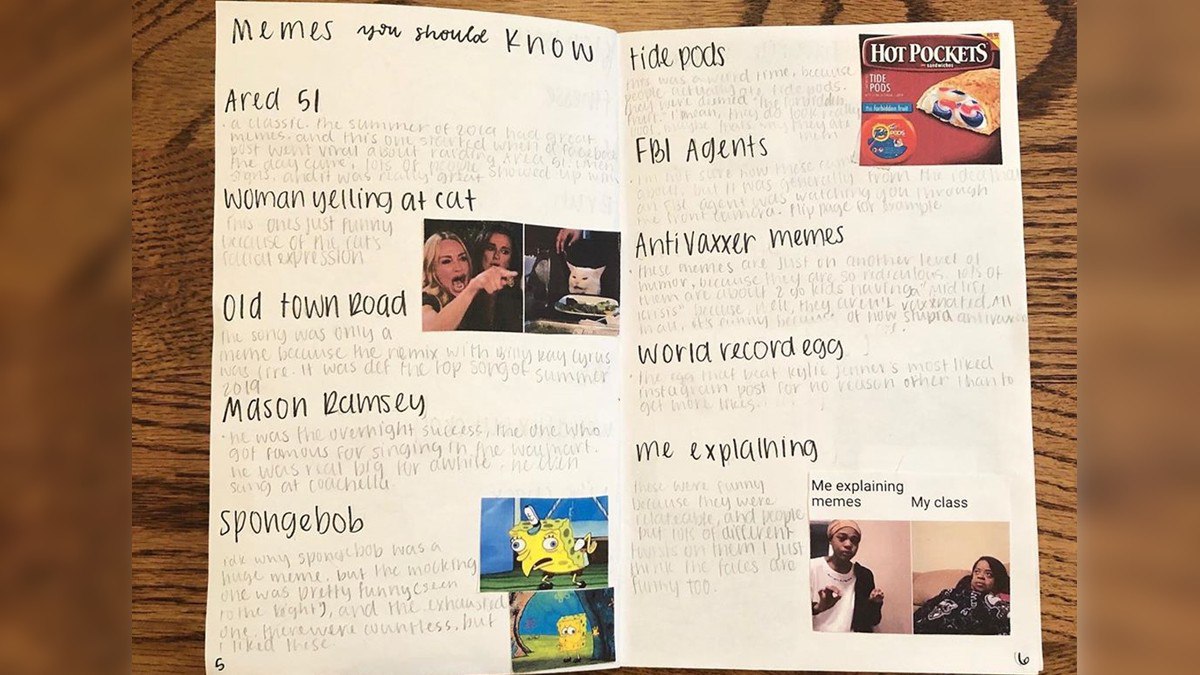 Memes you should Know
Area 51
• a classic. The summer of 2019 had great
memes. and this one started when a facebook
post went viral about raiding Area 51. When
the day came, lots of people showed up with
signs, and it was really great
Woman yelling at cat
This ones just funny
because of the cats
facial expression
Old Town Road
the song was only a
meme because the remix with Billy Ray Cyrus
was fire. It was def the top song of summer
2019
Mason Ramsey
• he was the overnight success, the one who
got famous for singing in the walmart.
he was real big for awhile. he even
sang at coachella
Spongebob
idk why spongebob was a
huge meme, but the mocking
one was pretty funny (seen
to the right), and the exhausted
one. there were countless, but
I liked these.
5
tide pods
this was a weird time, because
people actually ate tide pods.
they were deemed "the forbidden
fruit." I mean, they do look really
HOT POCKETS
sandwiches
TIDE
PODS
the forbidden fruit
Tide PODS
FBI Agents
• I'm not sure how these came
about but it was generally from the idea that
an FBI agent was watching you through
the front camera. flip page for example
Antivaxxer memes
• These memes are just on another level of
humor, because they are so ridiculous. lots of
them are about 2 yo kids having a "mid life
crisis" because well, they aren't vaxxinated. All
in all, it's funny because of how stupid antivaxxers
World record egg
• the egg that beat kylie jenner's most liked
instagram post for no reason other than to
get more likes.
me explaining
these were funny
because they were
relateable, and people
put lots of different
twists on them I just
think the faces are
funny too.
Me explaining
memes
My class
6